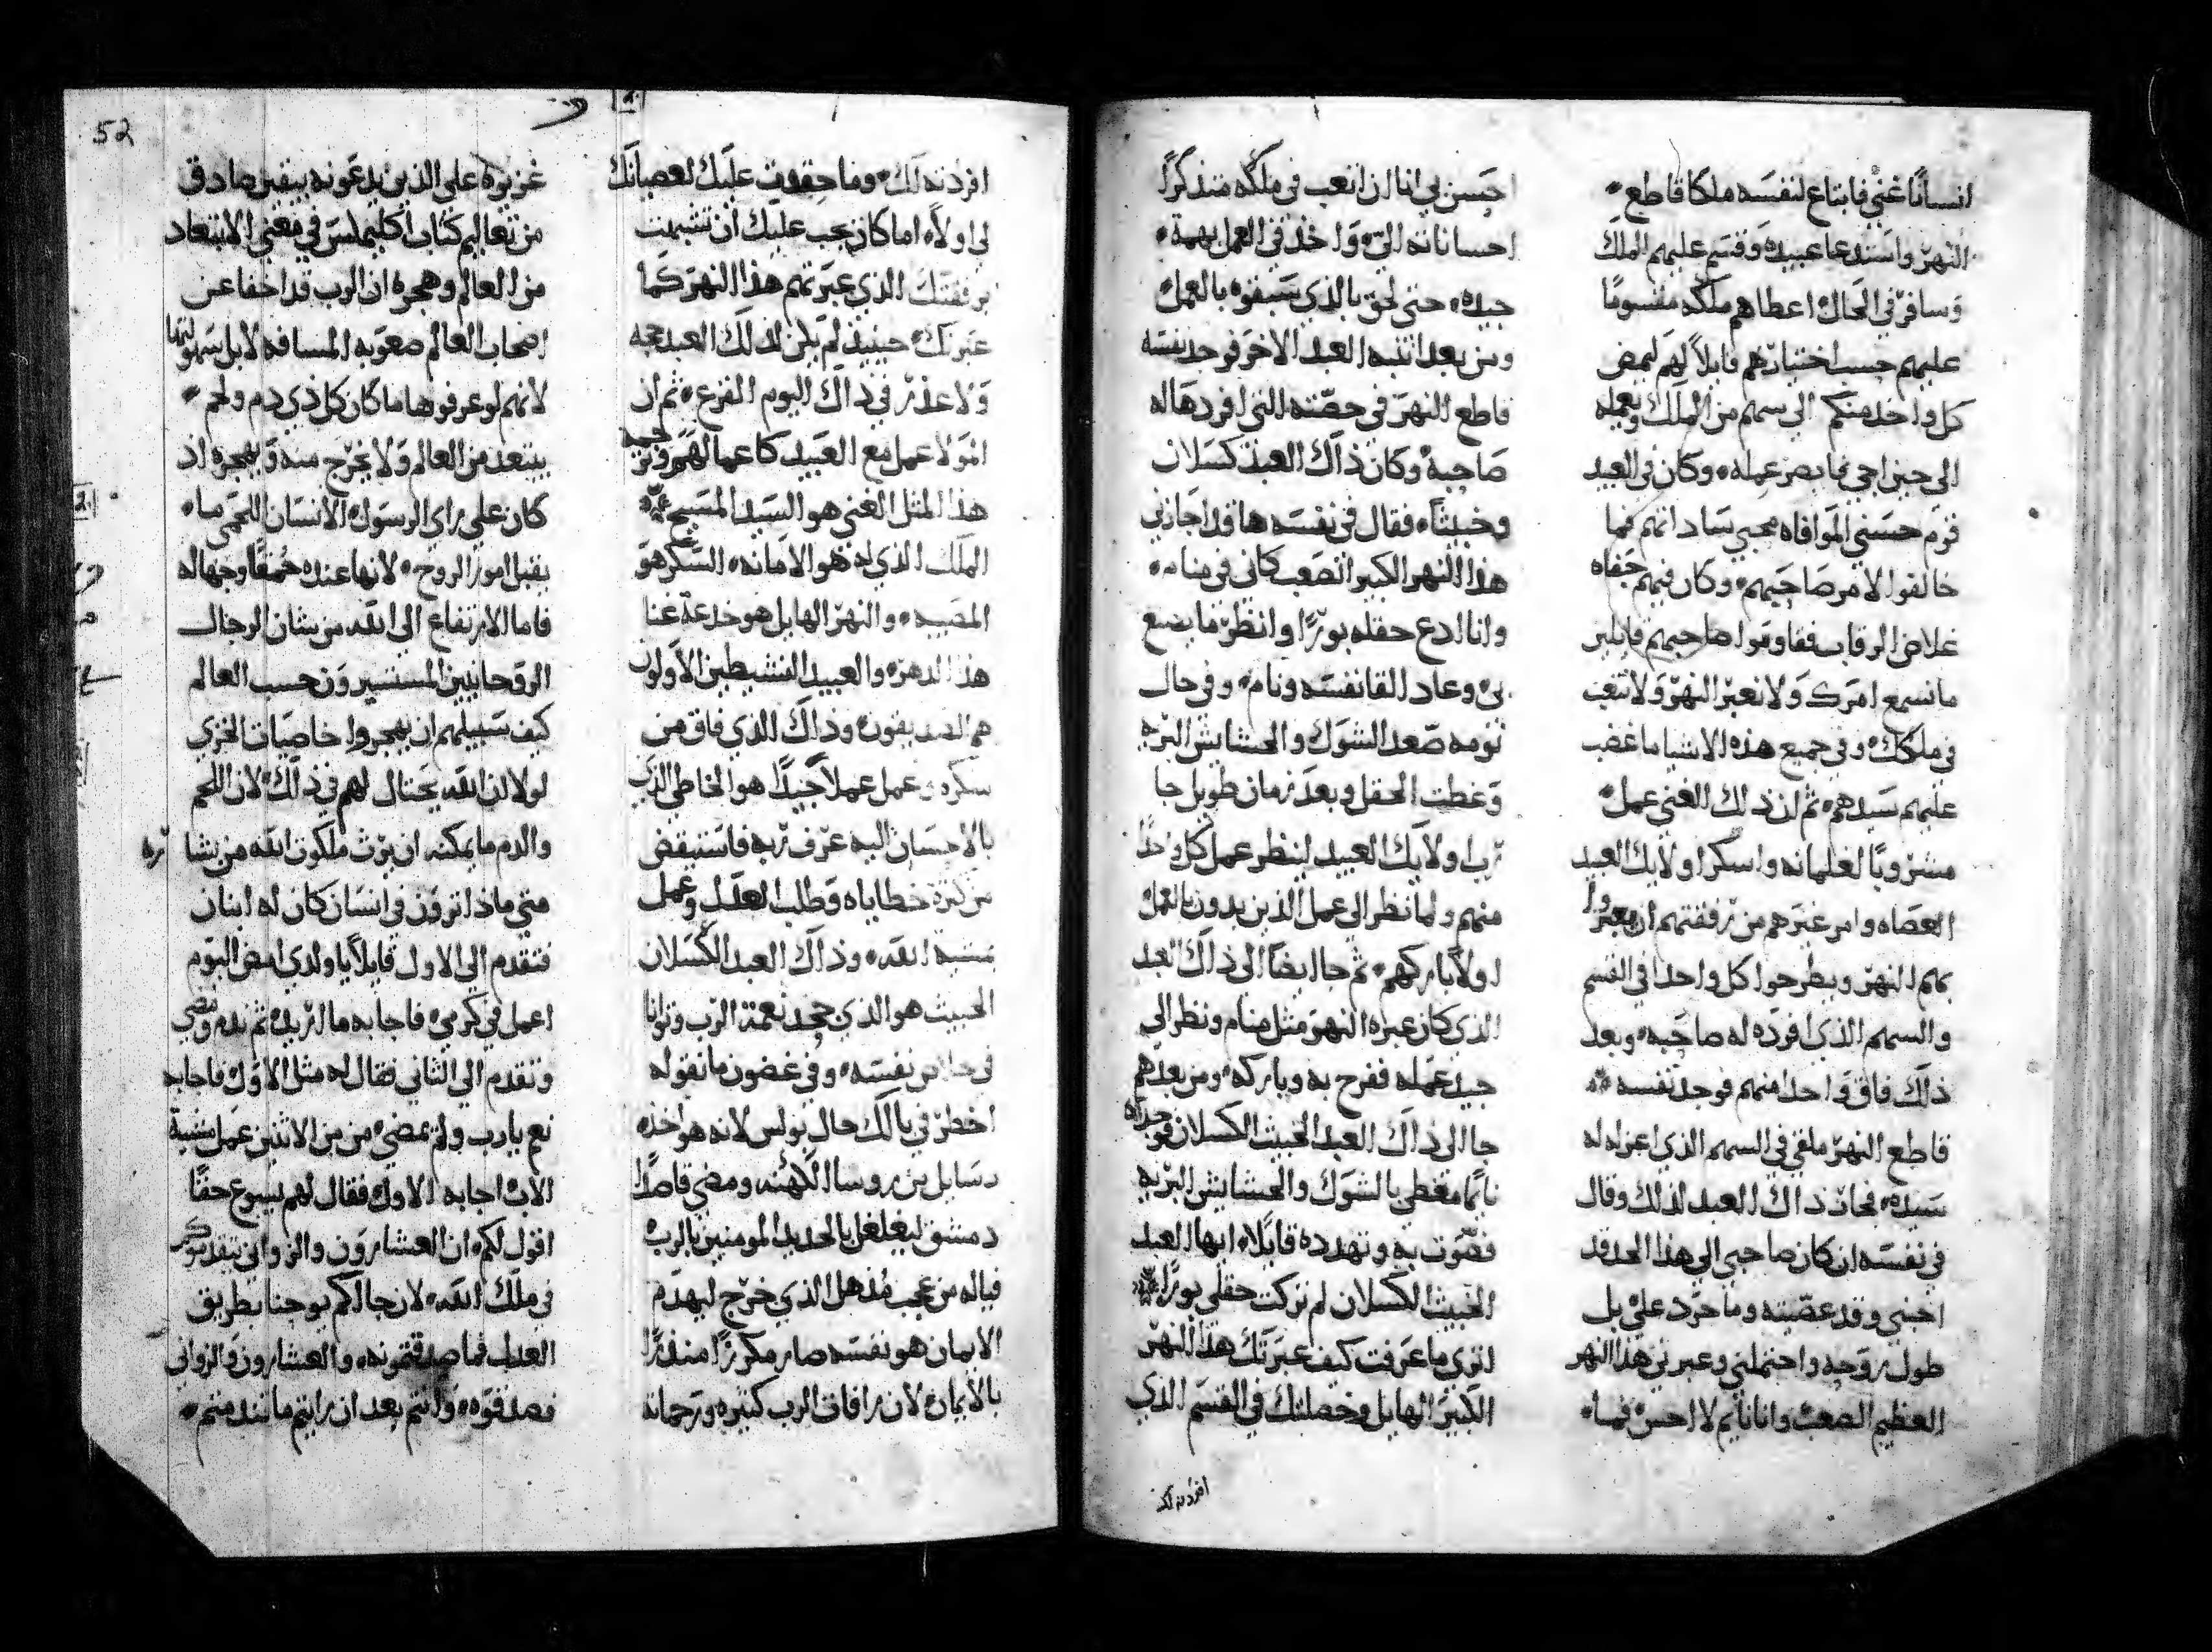 انسانًا غني فابتاع لنفسه ملكا قاطع
النهر واستدعا عبيده وقسم عليهم الملك
وسافر في الحال اعطاهم ملكه مقسومًا
عليهم حسب اختيارهم قايلاً لهم ليمض
كل واحد منكم الي سهم من الملك ويعمله
الي حين اجي فابصر عمله وكان في العبيد
قوم حسني الموافاه محبي ساداتهم فما
خالفوا الامر صاحبهم وكان فيهم جفاه
غلاض الرقاب فقاوموا صاحبهم قايلين
ما نسمع امرك ولا نعبر النهر ولا نتعب
في ملكك وفي جميع هذه الاشيا ما غضب
عليهم سيدهم ثم ان ذلك الغني عمل
مشروبًا لغلمانه واسكر اولايك العبيد
العصاه وامر غيرهم من رفقتهم ان يعبروا
بهم النهر ويطرحوا كل واحدا في القسم
والسهم الذي افرده له صاحبه وبعد
ذلك فاق واحدا منهم فوجد نفسه
قاطع النهر ملقي في السهم الذي اعزله له
سيده فحان ذاك العبد لذلك وقال
في نفسه ان كان صاحبي الي هذا الحد قد
احبني وقد عصيته وما حرد علي بل
طول روحه واحتملني وعبرني هذا النهر
العظيم الصعب وانا نايم لا احس فما
احسن بي انا ان اتعب في ملكه متذكرًا
احساناته الي واخذ في العمل بهمة
جيده حتي لحق بالذي سبقوه بالعمل
ومن بعد انتبه العبد الاخر فوجد نفسه
قاطع النهر في حصته التي افردها له
صاحبه وكان ذاك العبد كسلان
وخبيثًا فقال في نفسه ها قد اجازني
هذا النهر الكبير الصعب كاني في منام
وانا ادع حقله بورًا وانظر ما يصنع
بي وعاد القا نفسه ونام وفي حال
نومه صعد الشوك والحشايش البريه
وغطت الحقل وبعد زمان طويل جا
رب اولايك العبيد لينظر عمل كل واحدًا
منهم ولما نظر الي عمل الذين بدون بالعمل
اولاً باركهم ثم جا ايضًا الي ذاك العبد
الذي كان عبراه النهر مثل منام ونظر الي
جيد عمله ففرح به وباركه ومن بعدهم
جا الي ذاك العبد الخبيث الكسلان فوجداه
نايمًا مغطي بالشوك والحشايش البريه
فصوت به وتهدده قايلاً ايها العبد
الخبيث الكسلان لم تركت حقلي بورًا
اتري ما عرفت كيف عبرتك هذا النهر
الكبير الهايل وحصلتك في القسم الذي
افردته لك
52
افردته لك وما حقدت عليك لعصيانك
لي اولاً اما كان يجب عليك ان تشبهت
برفقتك الذي عبرتهم هذا النهر كما
عبرتك حينيذ لم يكن لذلك العبد حجه
ولا عذر في ذاك اليوم الفزع ثم ان
المولا عمل مع العبيد كاعمالهم وترجمة
هذا المثل الغني هو السيد المسيح
الملك الذي له هو الامانه السكر هو
المصيبه والنهر الهايل هو خدعة غنا
هذا الدهر والعبيد النشيطين الاولون
هم الصديقون وذاك الذي فاق من
سكره وعمل عملاً جيدًا هو الخاطي الذي
بالاحسان اليه عرف ربه فاستيقض
من كثرة خطاياه وطلب العدل وعمل
مشية الله وذاك العبد الكسلان
الخبيث هو الذي جحد نعمة الرب وتوانا
في خلاص نفسه وفي غضون ما نقوله
اخطر في بالك حال بولس لانه هو اخذه
رسايل من روسا الكهنه ومضي قاصدًا
دمشق ليغلغل بالحديد المومنين بالرب
فياله من عجب مذهل الذي خرج ليهدم
الايمان هو نفسه صار مكررًا منذرًا
بالايمان لان رافات الرب كثيره ورحماته
غزيره علي الذين يدعونه بيقين صادق
من تعاليم كتاب اكليمكس في معني الابتعاد
من العالم وهجره ان الرب قد اخفا عن
اصحاب العالم صعوبه المسافه لا بل سهولتها
لانهم لو عرفوها ما كان كل ذي دم ولحم
يبتعد من العالم ولا يخرج منه ويهجره اذ
كان علي راي الرسول الانسان اللحمي ما
يقبل امور الروح لانها عنده حمقًا وجهاله
فاما الارتفاع الي الله من شان الرجال
الروحانيين المستنيرون حسب العالم
كيف سبيلهم ان يهجروا خاصيات الخزي
لولا ان الله يحتال لهم في ذلك لان اللحم
والدم ما يمكنه ان يرث ملكوت الله من بشاره
متي ماذا ترون في انسان كان له ابنان
فتقدم الي الاول قايلاً يا ولدي امض اليوم
اعمل في كرمي فاجابه ما اريد ثم ندم ومضي
وتقدم الي الثاني فقال له مثل الاول فاجابه
نعم يا رب ولم يمضي من من الاثنين عمل مشية
الاب اجابه الاول فقال لهم يسوع حقًا
اقول لكم ان العشارون والزواني يتقدموكم
في ملك الله لان جالكم يوحنا بطريق
العدل فما صدقتمونه والعشارون والزواني
فصدقوه وانتم بعد ان رايتم ما تندمتم